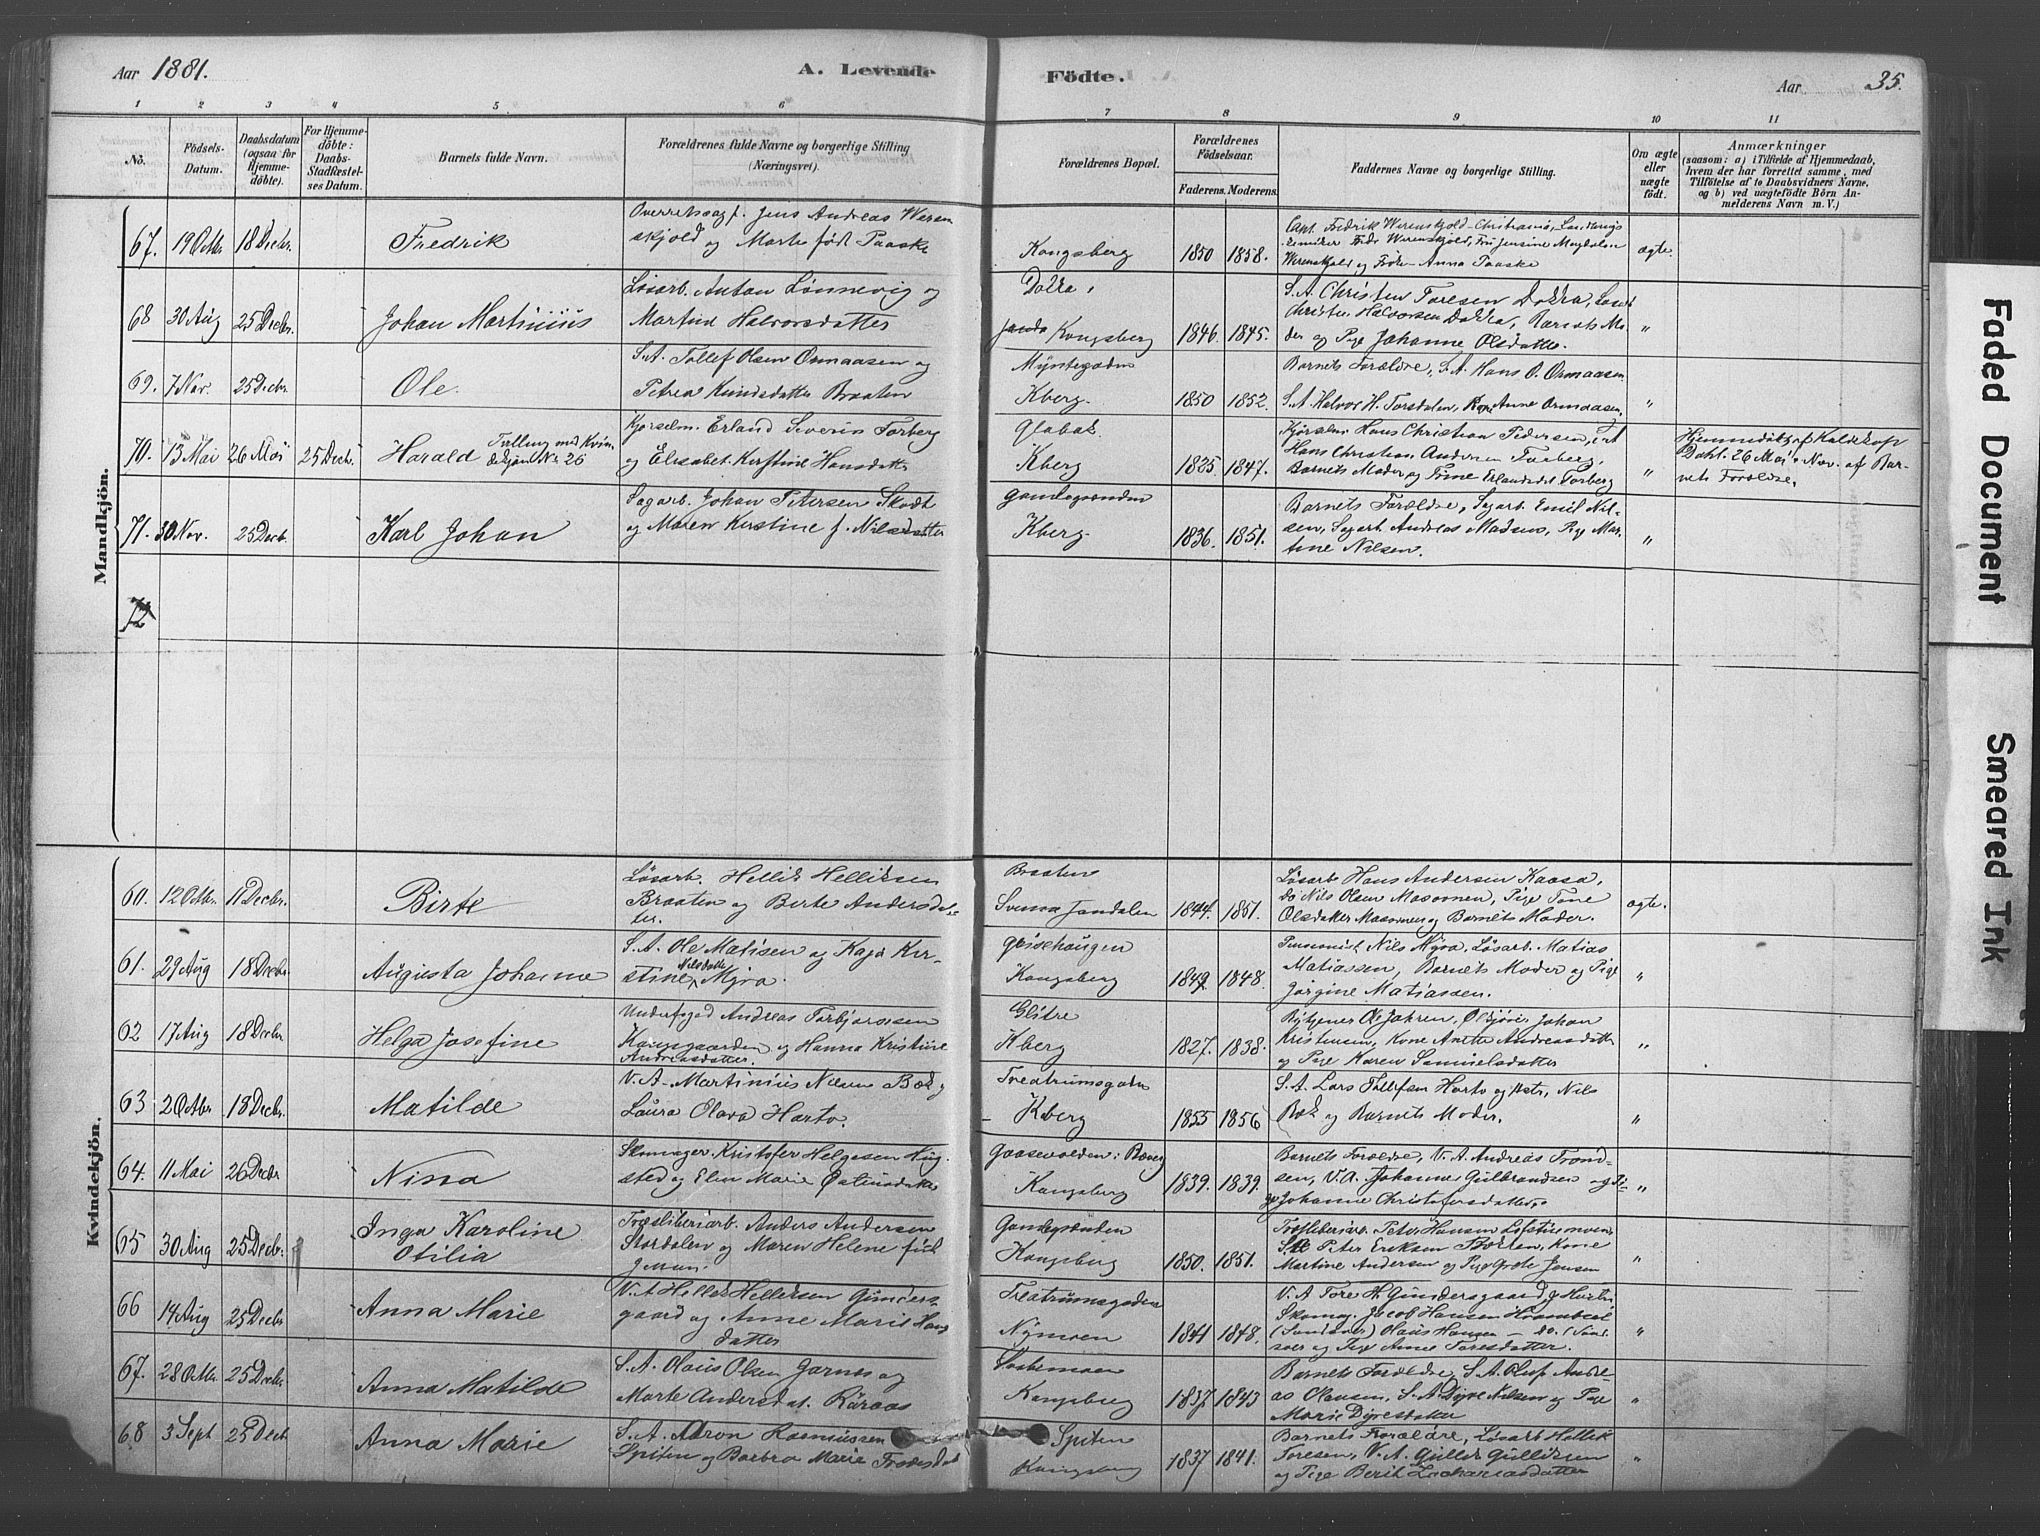 Aar 1881. A. Levende Födte. Aar 35.
1 2 3 4 5 6 7 8 9 10 11
No. Födsels-Datum. Daabsdatum (ogsaa for Hjemme-döbte). For Hjemme-döbte: Daabs-Stadfæstel-ses Datum. Barnets fulde Navn. Forældrenes fulde Navne og borgerlige Stilling (Næringsvei). Forældrenes Bopæl. Forældrenes Födselsaar. Faderens. Moderens. Faddernes Navne og borgerlige Stilling. Om ægte eller uægte födt. Anmærkninger (saasom: a) i Tilfælde af Hjemmedaab, hvem der har forrettet samme, med Tilföielse af to Daabsvidners Navne, og b) ved uægtefödte Börn An-melderens Navn m. V.)
Mandkjön.
67. 19 Octbr. 18 Decbr. Fredrik
Overretssagf. Jens Andreas Weren
skjold og Marte född Paaske
Kongsberg 1850 1858.
Capt. Fredrik Werenskjold Christiania, Landskabs
Werenskjold, Fru Jensine Magdalene
Werenskjold og Anna Paaske
ægte.
68 30 Aug 25 Decbr. Johan Martinius
Lösarb. Anton Lönnevig og
Martine Halvorsdatter
Dokka,
Kongsberg 1846. 1845.
S.A. Christen Toresen Dokka,
Christen Halvorsen Dokka, Barnets Mo-
der og Pige Johanne Olsdatter.
"
69. 7 Nov. 25 Decbr. Ole.
S.A. Tollef Olsen Ormaasen og
Petrea Knudsdatter Braaten
Myntegaden
Kberg. 1850 1852.
Barnets Forældre, S.A. Hans O. Ormaasen
S.A. Halvor H. Torsdalen, Anne Ormaasen,
"
70. 13 Mai 26 Mai 25 Decbr. Harald Tvilling med Kvin
dekjøn No 26
Kjörselm. Erland Severin Torberg
og Elisabet Kerstine Hansdatter
Glabak.
Kberg 1835 1847.
Kjörselm Hans Christian Pedersen,
Hans Christian Andersen Torberg,
Barnets Moder og Trine Erlandsdt Torberg
"
Hjemmedöbt
Döbt. 26 Mai af Bar-
nets Forældre.
71. 30 Nov. 25 Decb. Karl Johan
Sagarb. Johan Petersen Skodt
og Maren Kirstine f. Nilsdatter
Gamlegrenden
Kberg. 1836. 1851.
Barnets Forældre, Sagarb Emil Nil-
sen, Sagarb Andreas Madsen, Pige Mar-
tine Nilsen.
"
72
Kvindekjön.
60. 12 Octbr. 11 Decbr. Birte
Lösarb Hellik Helliksen
Braaten og Berte Andersdat-
ter.
Braaten
Svenne Jondalen 1844. 1851.
Lösarb Hans Andersen Kaasa,
do Nils Olsen Masovnen, Pige Tone
Olsdatter Masovnen og Barnets Moder.
ægte.
61. 29 Aug 18 Decbr. Augusta Johanne
S.A. Ole Matisen og Kaja Kir-
stine Nilsdatter Myra.
Geisehaugen
Kongsberg 1849 1848.
Pensionist Nils Myra, Lösarb. Matias
Matiassen, Barnets Moder og Pige
Jörgine Matiassen.
"
62 17 Aug 18 Decbr Helga Josefine
Underfoged Andreas Torbjörnsen
og Hanna Kristine
Andreasdatter.
Glitre
Kberg 1827. 1838.
Ole Jahren, Johan
Kristensen, Kone Anette Andreasdatter
og Pige Karen Samuelsdatter
"
63 2 Octbr 18 Decbr. Matilde
V.A. Martinius Nilsen Bæk og
Laura Olava Harto.
Treatrumsgaden
Kberg 1855 1856
S.A. Lars Tollefsen Harto og Nils
Bæk og Barnets Moder.
"
64. 11 Mai 26 Decbr Nina
Skomager Kristofer Helgesen Hug
sted og Elen Marie Östensdatter
Gaasevolden
Kongsberg 1839. 1839.
Barnets Forældre, V.A. Andreas Trond-
sen, V.A. Johannes Gulbrandsen og Pi-
ge Johanne Christofersdatter.
"
65 30 Aug 25 Decb. Inga Karoline
Otilia
Træsliberiarb. Anders Andersen
Stordalen og Maren Helene född
Gamlegrenden
Kongsberg 1850. 1851.
Træsliberiarb. Peter Hansen
Peter Eriksen Kone
Martine Andersen og Pige Grete Jensen
"
66 14 Aug 25 Decbr Anna Marie
V.A. Hellek Helleksen Gunders-
gaard og Anne Marie Hans
datter
Treatrumsgaden
Nymoen 1841 1848.
V.A. Tore H. Gundersgaard, J Hustru
Skomag. Jacob Hansen
(Sandsvær) Olaus Hansen – do. (Sand-
svær og Pige Anne Toresdatter.
"
67. 28 Octbr. 25 Decbr. Anna Matilde
S.A. Olaus Olsen Jarnes og
Marte Andersdat. Röraas
Kongsberg 1837 1843
Barnets Forældre, S.A. Oluf Andre-
as Olausen, S.A. Dyre Nilsen og Pige
Marie Dyresdatter
"
68 3 Sept 25 Decbr Anna Marie
S.A. Aron Rasmussen
Spiten og Barbro Marie
Spiten
Kongsberg 1837 1841.
Barnets Forældre, Lösarb Hellik
Toresen, V.A. Gullik Gulliksen
og Pige Berit Zachariasdatter
"
Faded Document
Smeared Ink